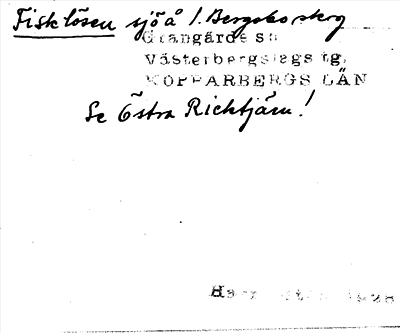 Fisklösen sjö å l. Bergsko skog
Grangärde sn
Västerbergslags tg.
KOPPARBERGS LÄN
Se Östra Ricktjärn!
1928